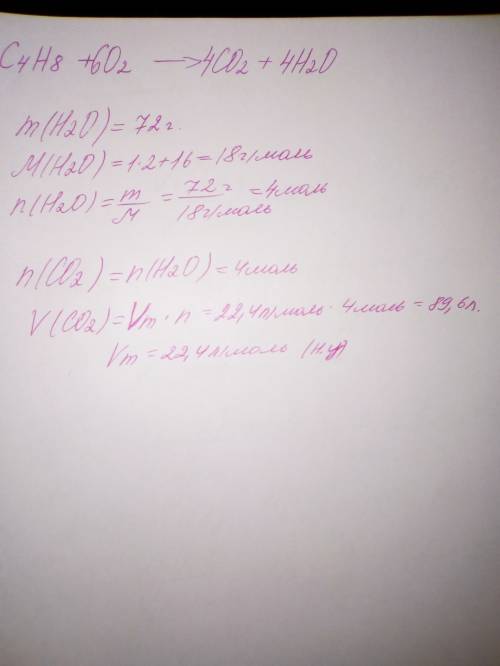 C4H8 + 6O2 → 4CO2 + 4H2O
m(H2O) = 72г.
M(H2O) = 1·2+16 = 18г/моль
n(H2O) = m/M = 72г/18г/моль = 4моль
n(CO2) = n(H2O) = 4моль
V(CO2) = Vm · n = 22,4л/моль · 4моль = 89,6л.
Vm = 22,4л/моль (н.у)